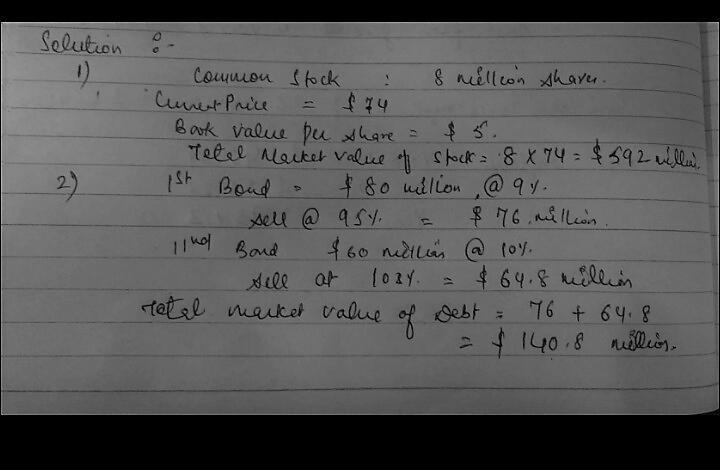 Solution :-
1) Common Stock : 8 million shares.
Current Price = $ 74
Book value per share = $ 5.
Total Market value of stock = 8 X 74 = $592 million.
2) 1st Bond = $ 80 million @ 9%.
sell @ 95% = $ 76 million.
IInd Bond $60 million @ 10%.
sell at 108% = $ 64.8 million
Total market value of Debt = 76 + 64.8
= $ 140.8 million.